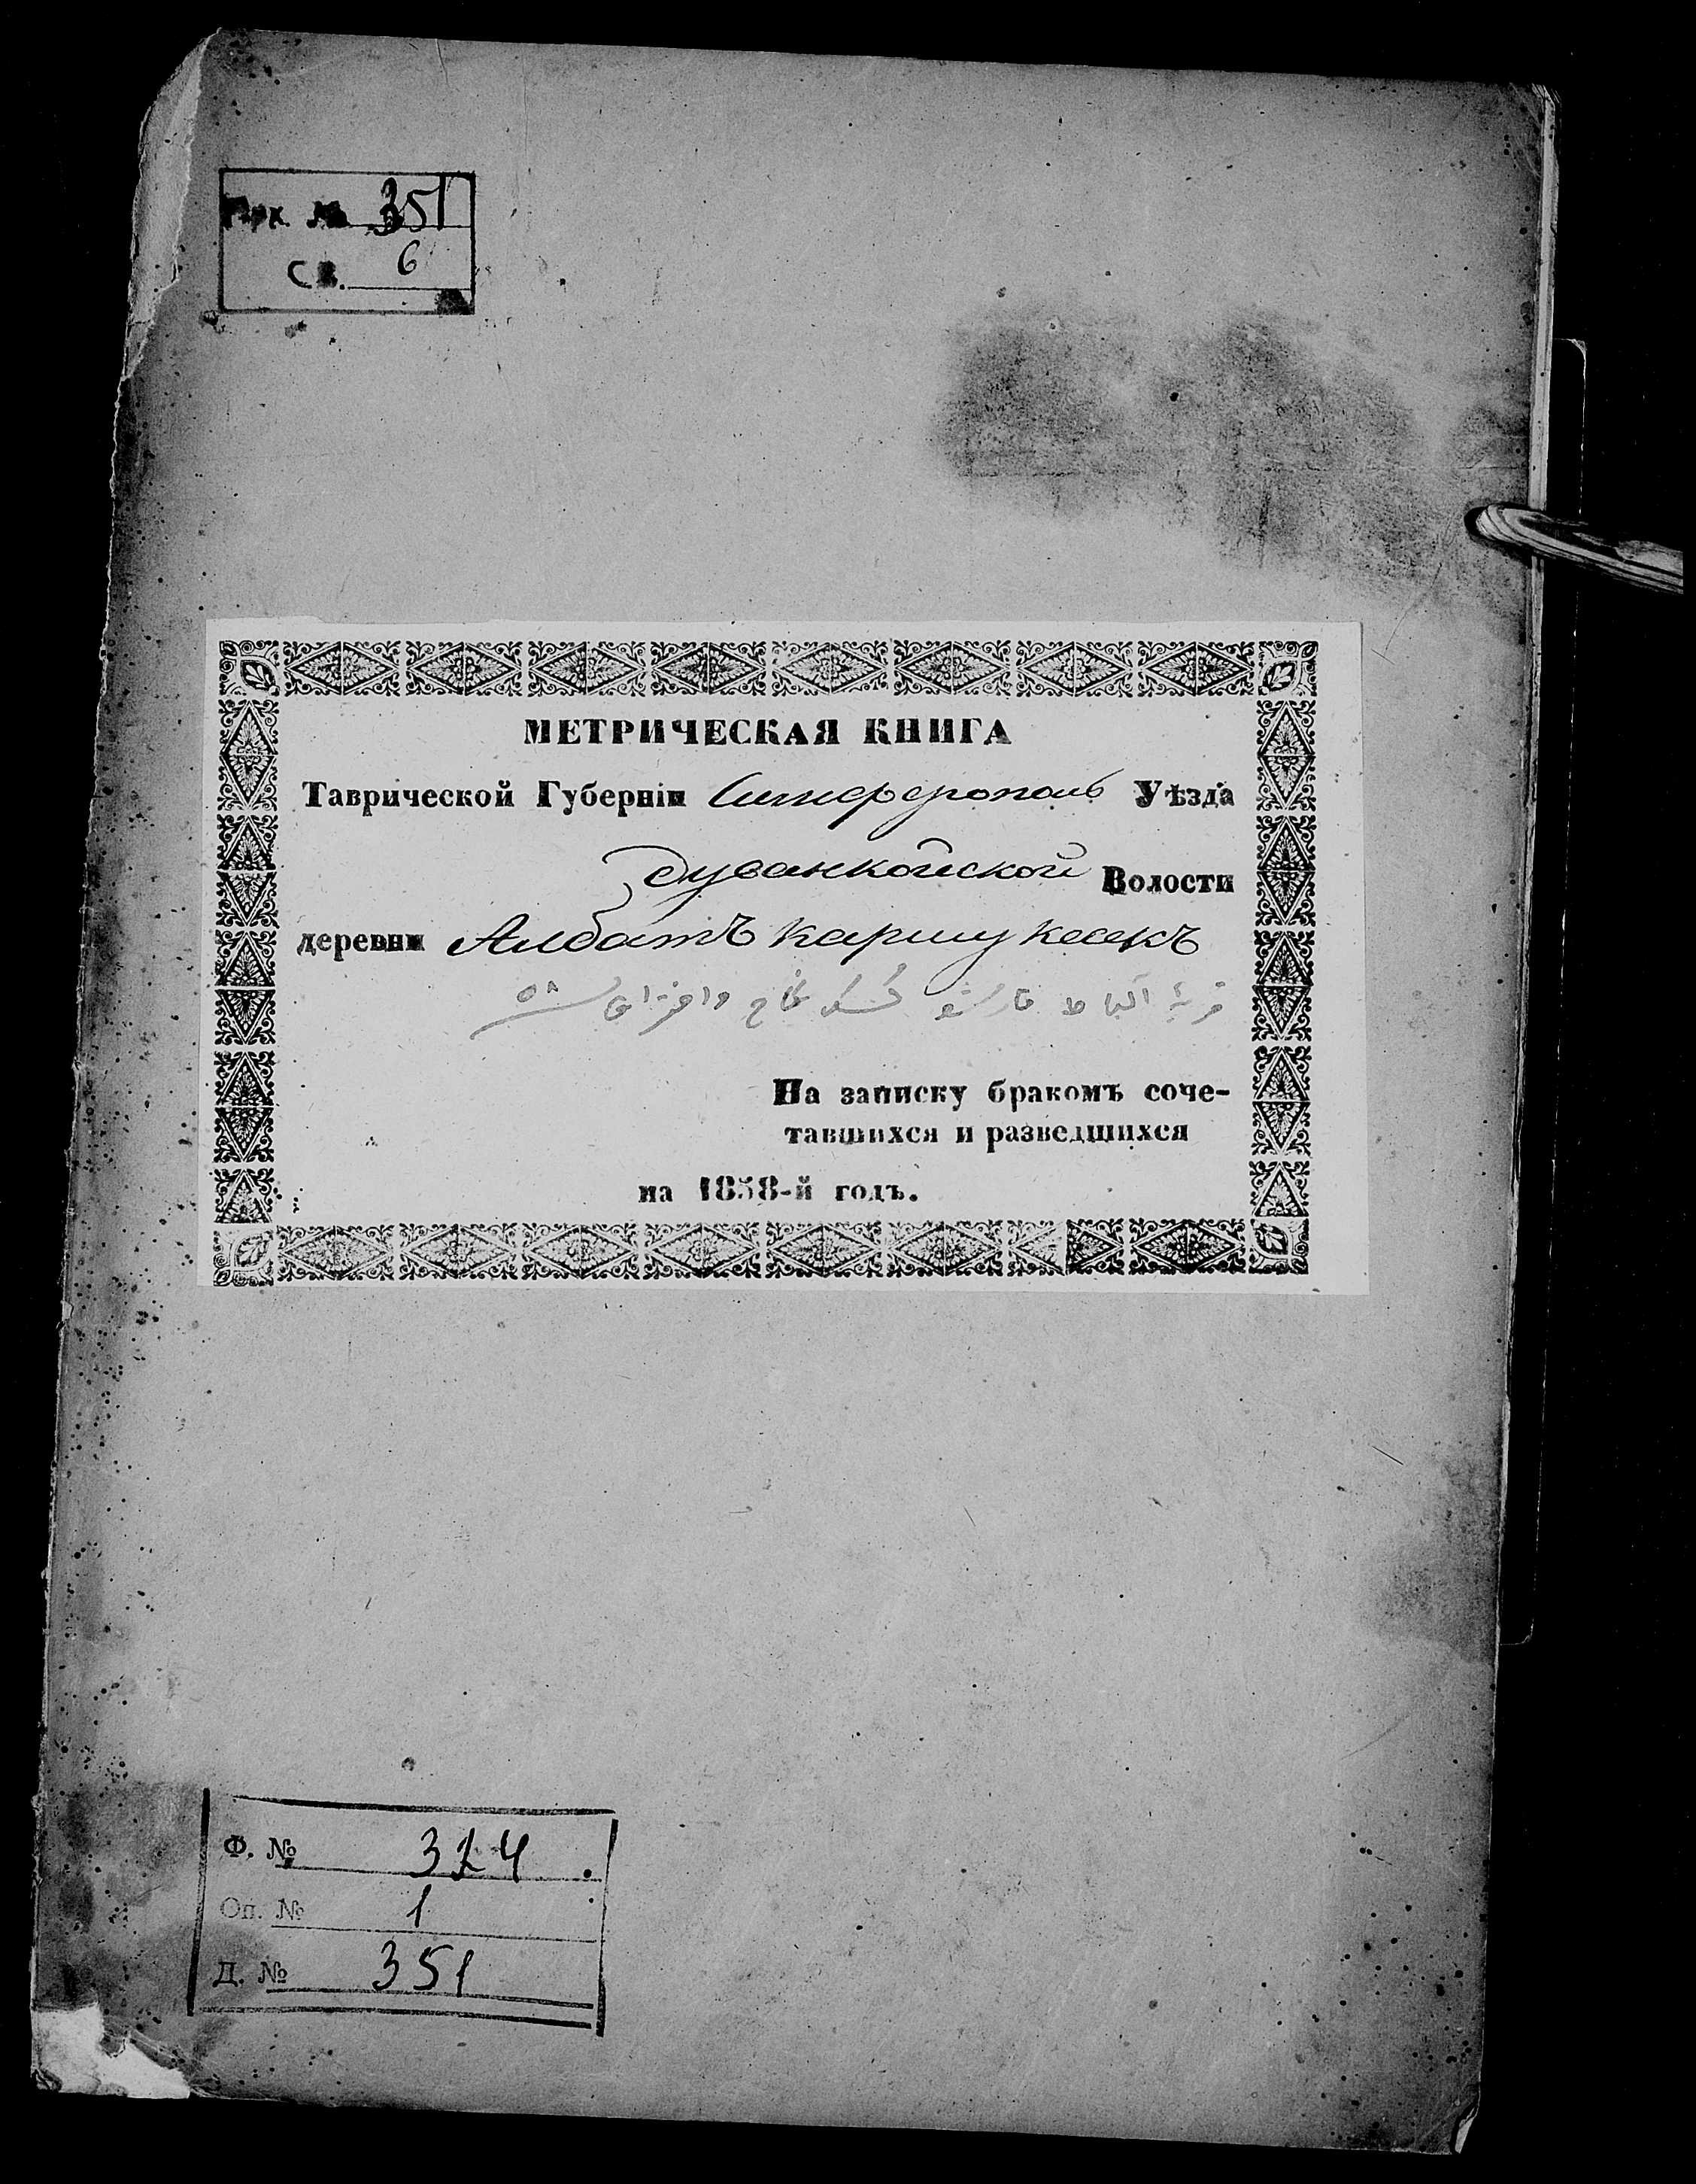 Арх. № 351
Св. 6
МЕТРИЧЕСКАЯ КНИГА
Таврической Губерніи Симферополь Уѣзда
Дуванкойской Волости
деревни Албатъ каршу кесекъ
قریهٔ آلباط قارشو کسک نکاح وافتراق ۵۸
На записку бракомъ соче-
тавшихся и разведшихся
на 1858-й годъ.
Ф. № 324
Оп. № 1
Д. № 351